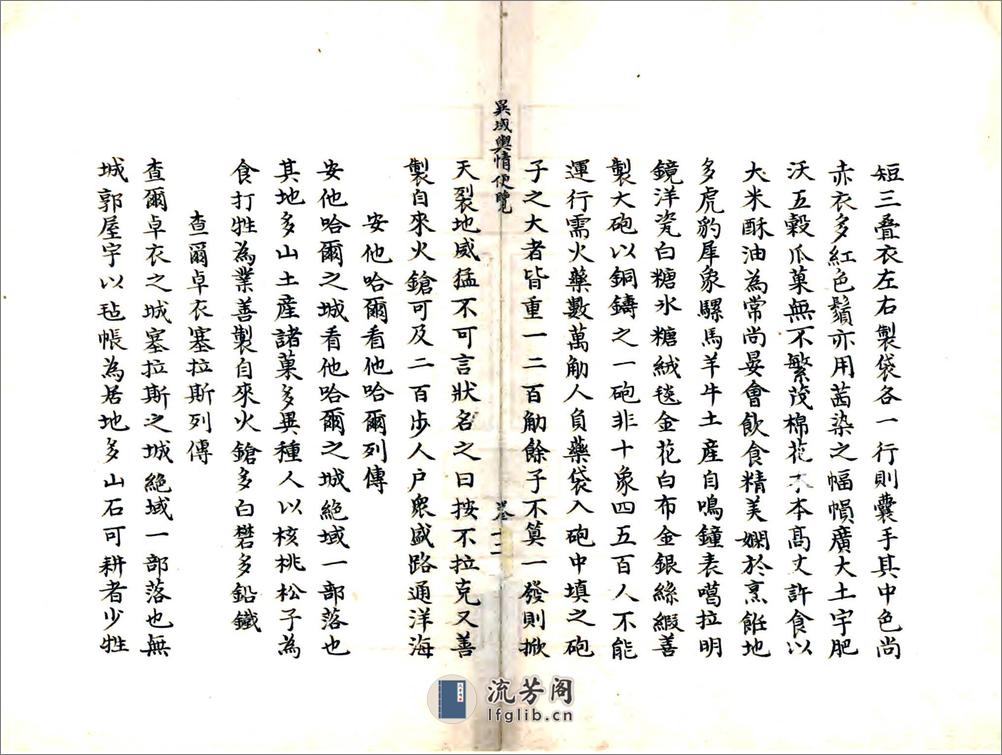 短三叠衣左右製袋各一行則囊手其中色尚
赤衣多紅色鬚亦用茜染之幅幀廣大土宇肥
沃五穀瓜菓無不繁茂棉花木本高丈許食以
大米酥油為常尚晏會飲食精美嫻於烹飪地
多虎豹犀象騾馬羊牛土産自鳴鐘表噶拉明
鏡洋瓷白糖氷糖絨毯金花白布金銀絲緞善
製大砲以銅鑄之一砲非十象四五百人不能
運行需火藥數萬觔人負藥袋入砲中填之砲
子之大者皆重一二百觔餘子不算一發則掀
異域輿情便覽
卷十二
天裂地威猛不可言狀名之曰按不拉克又善
製自來火鎗可及二百步人户衆盛路通洋海
安他哈爾看他哈爾列傳
安他哈爾之城看他哈爾之城絶域一部落也
其地多山土産諸菓多異種人以核桃松子為
食打牲為業善製自來火鎗多白礬多鉛鐵
查爾卓衣塞拉斯列傳
查爾卓衣之城塞拉斯之城絕域一部落也無
城郭屋宇以毡帳為居地多山石可耕者少牲
流芳阁
lfglib.cn